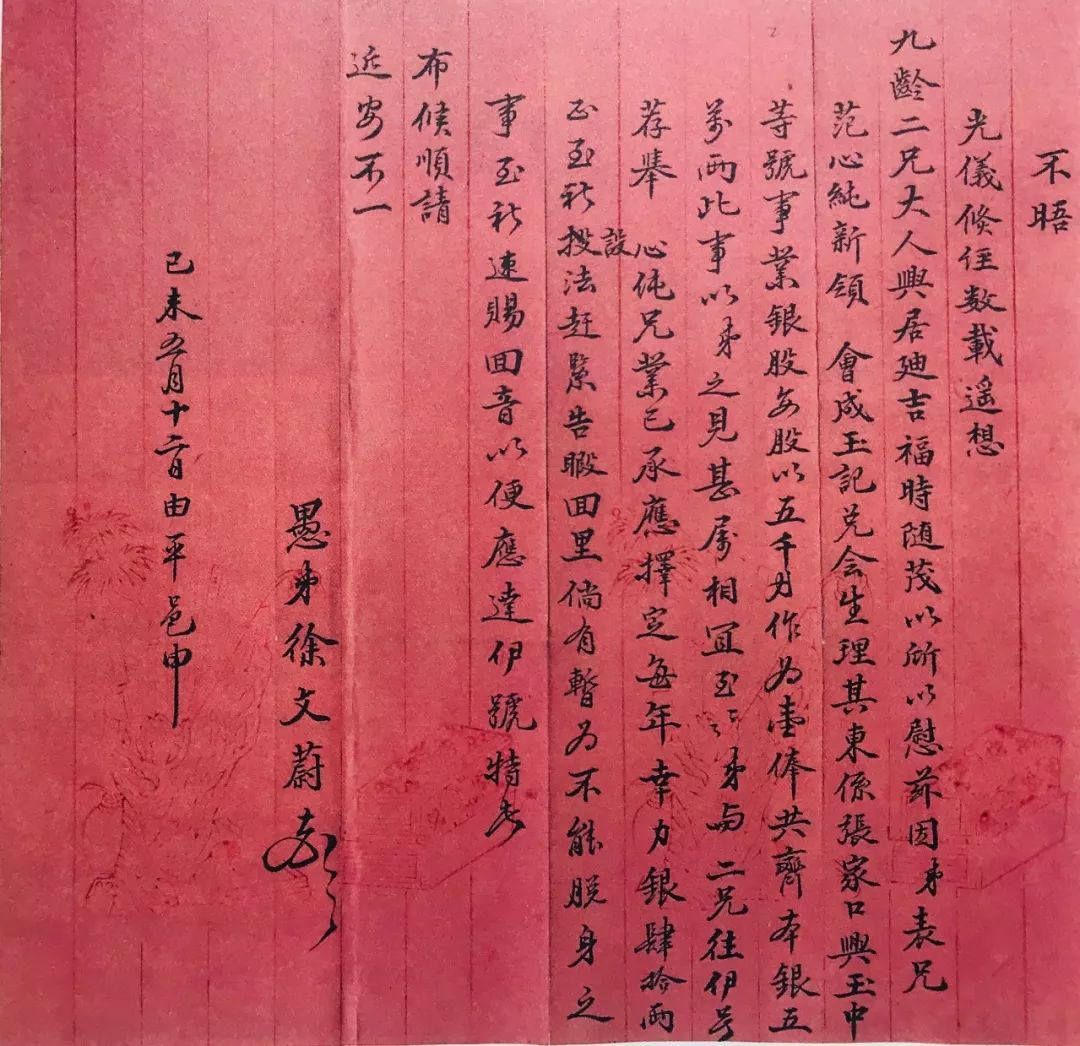 不晤
光儀倏徃数載遥想
九齡二兄大人興居廸吉福時随茂以所以慰茲因弟表兄
范心純新領會成玉記兑会生理其東係張家口興玉中
等號事業銀股每股以五千力作为壹俸共齊本銀五
萬両此事以弟之見甚属相宜至弟与二兄徃伊号
荐舉心純兄業已承應擇定每年幸力銀肆拾両
玉至祈設法赶緊告暇回里倘有暫为不能脱身之
事至祈速賜回音以便應達伊號特
布候順請
近安不一
愚弟徐文蔚
己未五月十二日由平邑申